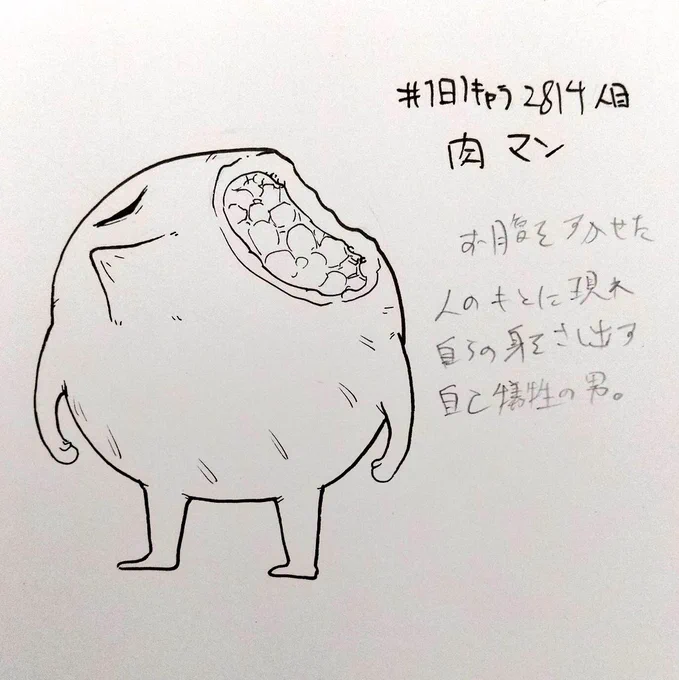 #1日1キャラ 2814人目
肉マン
お腹をすかせた
人のもとに現れ
自らの身をさし出す
自己犠牲の男。